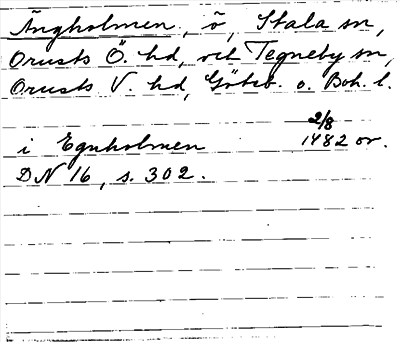 Ängholmen, ö, Stala sn,
Orusts Ö. hd, och Tegneby sn,
Orusts V. hd, Göteb. o. Boh. l.
2/8
i Egnholmen 1482 or.
DN 16, s. 302.